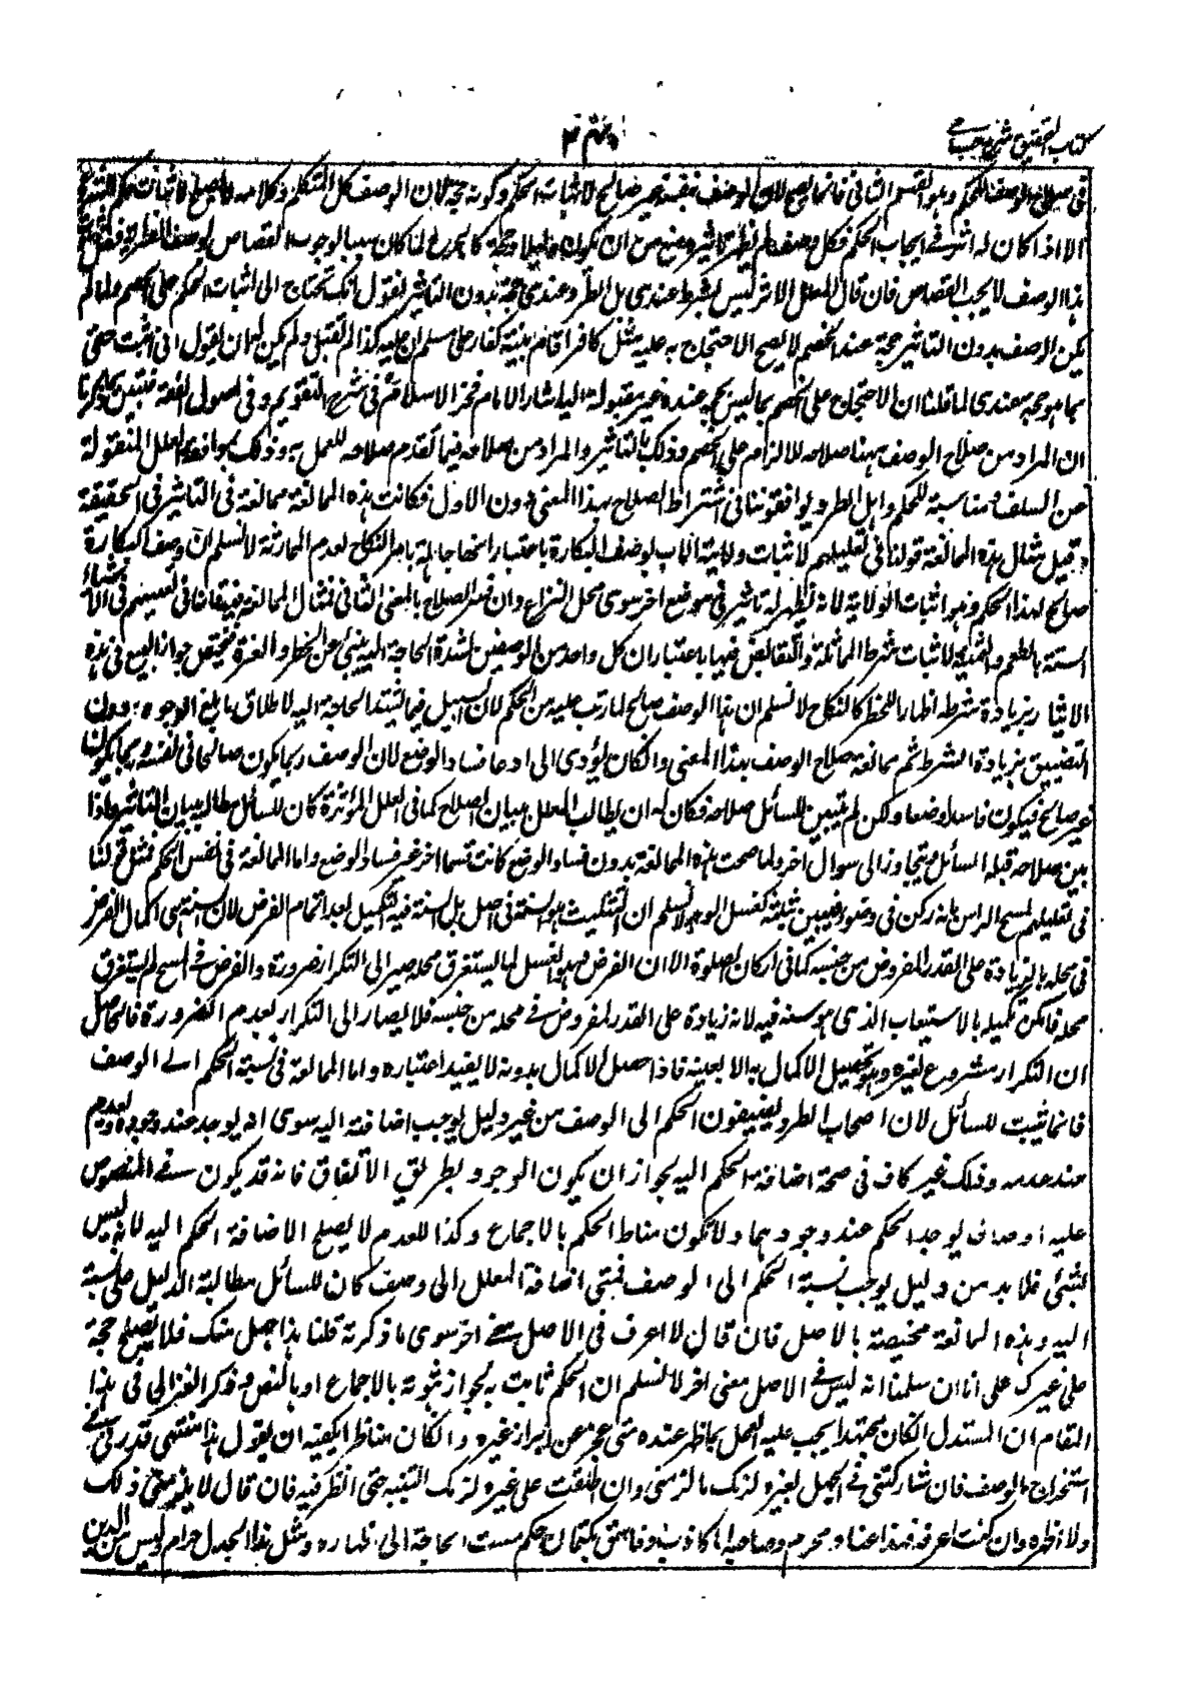 كتاب التحقيق شرح حسامي
في صلاح الوصف للحكم وهو القسم الثاني فانما يصح لان الوصف بنفسه غير صالح لاثبات الحكم وكونه حجة لان الوصف كل التكلم وكلامه لا يصلح لاثبات حكم الشرع
الا اذا كان له اثر في ايجاب الحكم فكل وصف لم يظهر تاثيره منع من ان يكون دليلا وحجة كالجرح لما كان سببا لوجوب القصاص بوصف السراية فقبل
هذا الوصف لا يجب القصاص فان قال المعلل الاثر ليس بشرط عندي بل الطرد عندي حجة بدون التاثير فنقول انك تحتاج الى اثبات الحكم على الخصم فلما لم
يكن الوصف بدون التاثير حجة عند الخصم لا يصح الاحتجاج به عليه مثل كافر اقام بينة كفار على مسلم ان عليه كذا لم تقبل ولم يكن له ان يقول اني اثبت حقي
بما هو حجة عندي لما قلنا ان الاحتجاج على الخصم بما ليس بحجة عنده غير مقبول اليه اشار الامام فخر الاسلام في شرح التقويم وفي اصول الفقه فتبين بما ذكرنا
ان المراد من صلاح الوصف ههنا صلاحه للالزام على الخصم وذلك بالتاثير والمراد من صلاحه فيما تقدم صلاحه للعمل به وذلك بموافقة العلل المنقولة
عن السلف ومناسبة للحكم واهل الطرد يوافقوننا في اشتراط الصلاح بهذا المعنى دون الاول فكانت هذه الممانعة ممانعة في التاثير في الحقيقة
وقيل مثال هذه الممانعة قولنا في تعليلهم لاثبات ولاية الاب بوصف البكارة باعتبار انها جاهلة بامر النكاح لعدم الممارسة لا نسلم ان وصف البكارة
صالح لهذا الحكم وهو اثبات الولاية لانه لم يظهر له تاثير في موضع اخر سوى محل النزاع وان فسر الصلاح بالمعنى الثاني فمثال الممانعة فيه قولنا في تعليلهم في الاشياء
الستة بالطعم والثمنية لاثبات شرط المماثلة والتقابض فيها باعتبار ان كل واحد من الوصفين لشدة الحاجة اليه ينبئ عن الخطر والعزة فيختص جواز البيع في هذه
الاشياء بزيادة شرط اظهارا للخطر كالنكاح لا نسلم ان هذا الوصف صالح لما رتب عليه من الحكم لان السبيل فيما يشتد الحاجة اليه الاطلاق بابلغ الوجوه دون
التضييق بزيادة الشرط ثم ممانعة صلاح الوصف بهذا المعنى وان كان يؤدي الى ادعا فساد الوضع لان الوصف ربما يكون صالحا في نفسه وربما يكون
غير صالح فيكون فاسدا وضعا ولكن لم يتبين للسائل صلاحه فكان له ان يطالب المعلل ببيان الصلاح كما في العلل المؤثرة كان للسائل مطالبة ببيان التاثير فاذا
بين صلاحه قبله السائل ويتجاوز الى سوال اخر ولما صحت هذه الممانعة بدون فساد الوضع كانت قسما اخر غير فساد الوضع واما الممانعة في نفس الحكم فمثل قولنا
في تعليلهم لمسح الراس بانه ركن في وضوء فيسن تثليثه كغسل الوجه لا نسلم ان التثليث هو السنة في الاصل بل السنة فيه التكميل بعد اتمام الفرض لان السنة هي اكمال الفرض
في محله بالزيادة على القدر المفروض من جنسه كما في اركان الصلوة الا ان الفرض في الغسل لما استغرق محله صير الى التكرار ضرورة والفرض في المسح لم يستغرق
محله فامكن تكميله بالاستيعاب الذي هو سنة فيه لانه زيادة على القدر المفروض في محله من جنسه فلا يصار الى التكرار لعدم الضرورة فالحاصل
ان التكرار مشروع لغيره وهو تحصيل الاكمال به لا بعينه فاذا حصل الاكمال بدونه لا يفيد اعتباره واما الممانعة في نسبة الحكم الى الوصف
فانما يثبت للسائل لان اصحاب الطرد يضيفون الحكم الى الوصف من غير دليل يوجب اضافته اليه سوى انه يوجد عند وجوده ويعدم
عند عدمه وذلك غير كاف في صحة اضافة الحكم اليه لجواز ان يكون الوجود بطريق الاتفاق فانه قد يكون في المنصوص
عليه اوصاف يوجد الحكم عند وجودها ولا تكون مناط الحكم بالاجماع وكذا العدم لا يصلح لاضافة الحكم اليه لانه ليس
بشئ فلا بد من دليل يوجب نسبة الحكم الى الوصف فمتى اضافه المعلل الى وصف كان للسائل مطالبة الدليل على نسبته
اليه وهذه الممانعة مختصة بالاصل فان قال لا اعرف في الاصل معنى اخر سوى ما ذكرته قلنا هذا جهل منك فلا يصلح حجة
على غيرك على انا ان سلمنا انه ليس في الاصل معنى اخر لا نسلم ان الحكم ثابت به لجواز ثبوته بالاجماع او بالنص وذكر الغزالي في هذا
المقام ان المستدل ان كان مجتهدا يجب عليه العمل بما ظهر عنده متى عجز عن ابراز غيره وان كان مناظرا يكفيه ان يقول هذا منتهى قدرتي في
استخراج الوصف فان شاركتني في الجهل بغيره لزمك ما لزمني وان اطلعت على غيره لزمك التنبيه حتى انظر فيه فان قال لا يلزمني ذلك
ولا اظهره وان كنت اعرفه فهذا عناد محرم وصاحبه اما كاذب او فاسق بكتمان حكم مست الحاجة الى اظهاره ومثل هذا الجدل حرام وليس من الدين